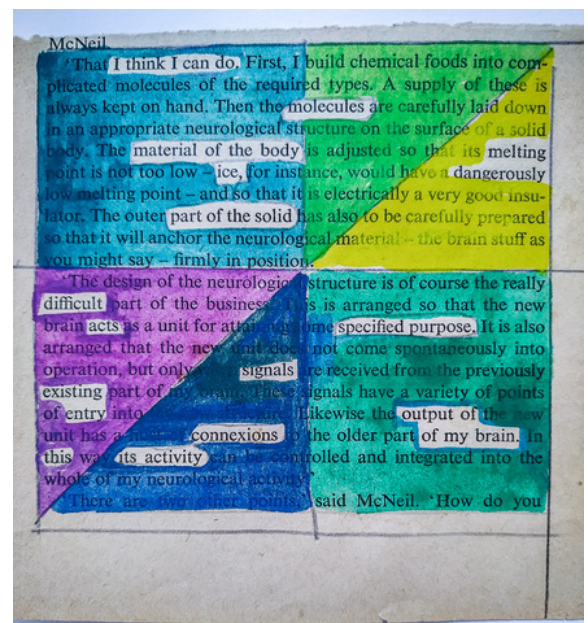 McNeil.
'That I think I can do. First, I build chemical foods into com-
plicated molecules of the required types. A supply of these is
always kept on hand. Then the molecules are carefully laid down
in an appropriate neurological structure on the surface of a solid
body. The material of the body is adjusted so that its melting
point is not too low – ice, for instance, would have a dangerously
low melting point – and so that it is electrically a very good insu-
lator. The outer part of the solid has also to be carefully prepared
so that it will anchor the neurological material – the brain stuff as
you might say – firmly in position.
'The design of the neurological structure is of course the really
difficult part of the business. This is arranged so that the new
brain acts as a unit for attaining some specified purpose. It is also
arranged that the new unit does not come spontaneously into
operation, but only signals are received from the previously
existing part of my brain. These signals have a variety of points
of entry into Likewise the output of the new
unit has a connexions to the older part of my brain. In
this way its activity can be controlled and integrated into the
whole of my neurological activity.
'There are two other points,' said McNeil. 'How do you